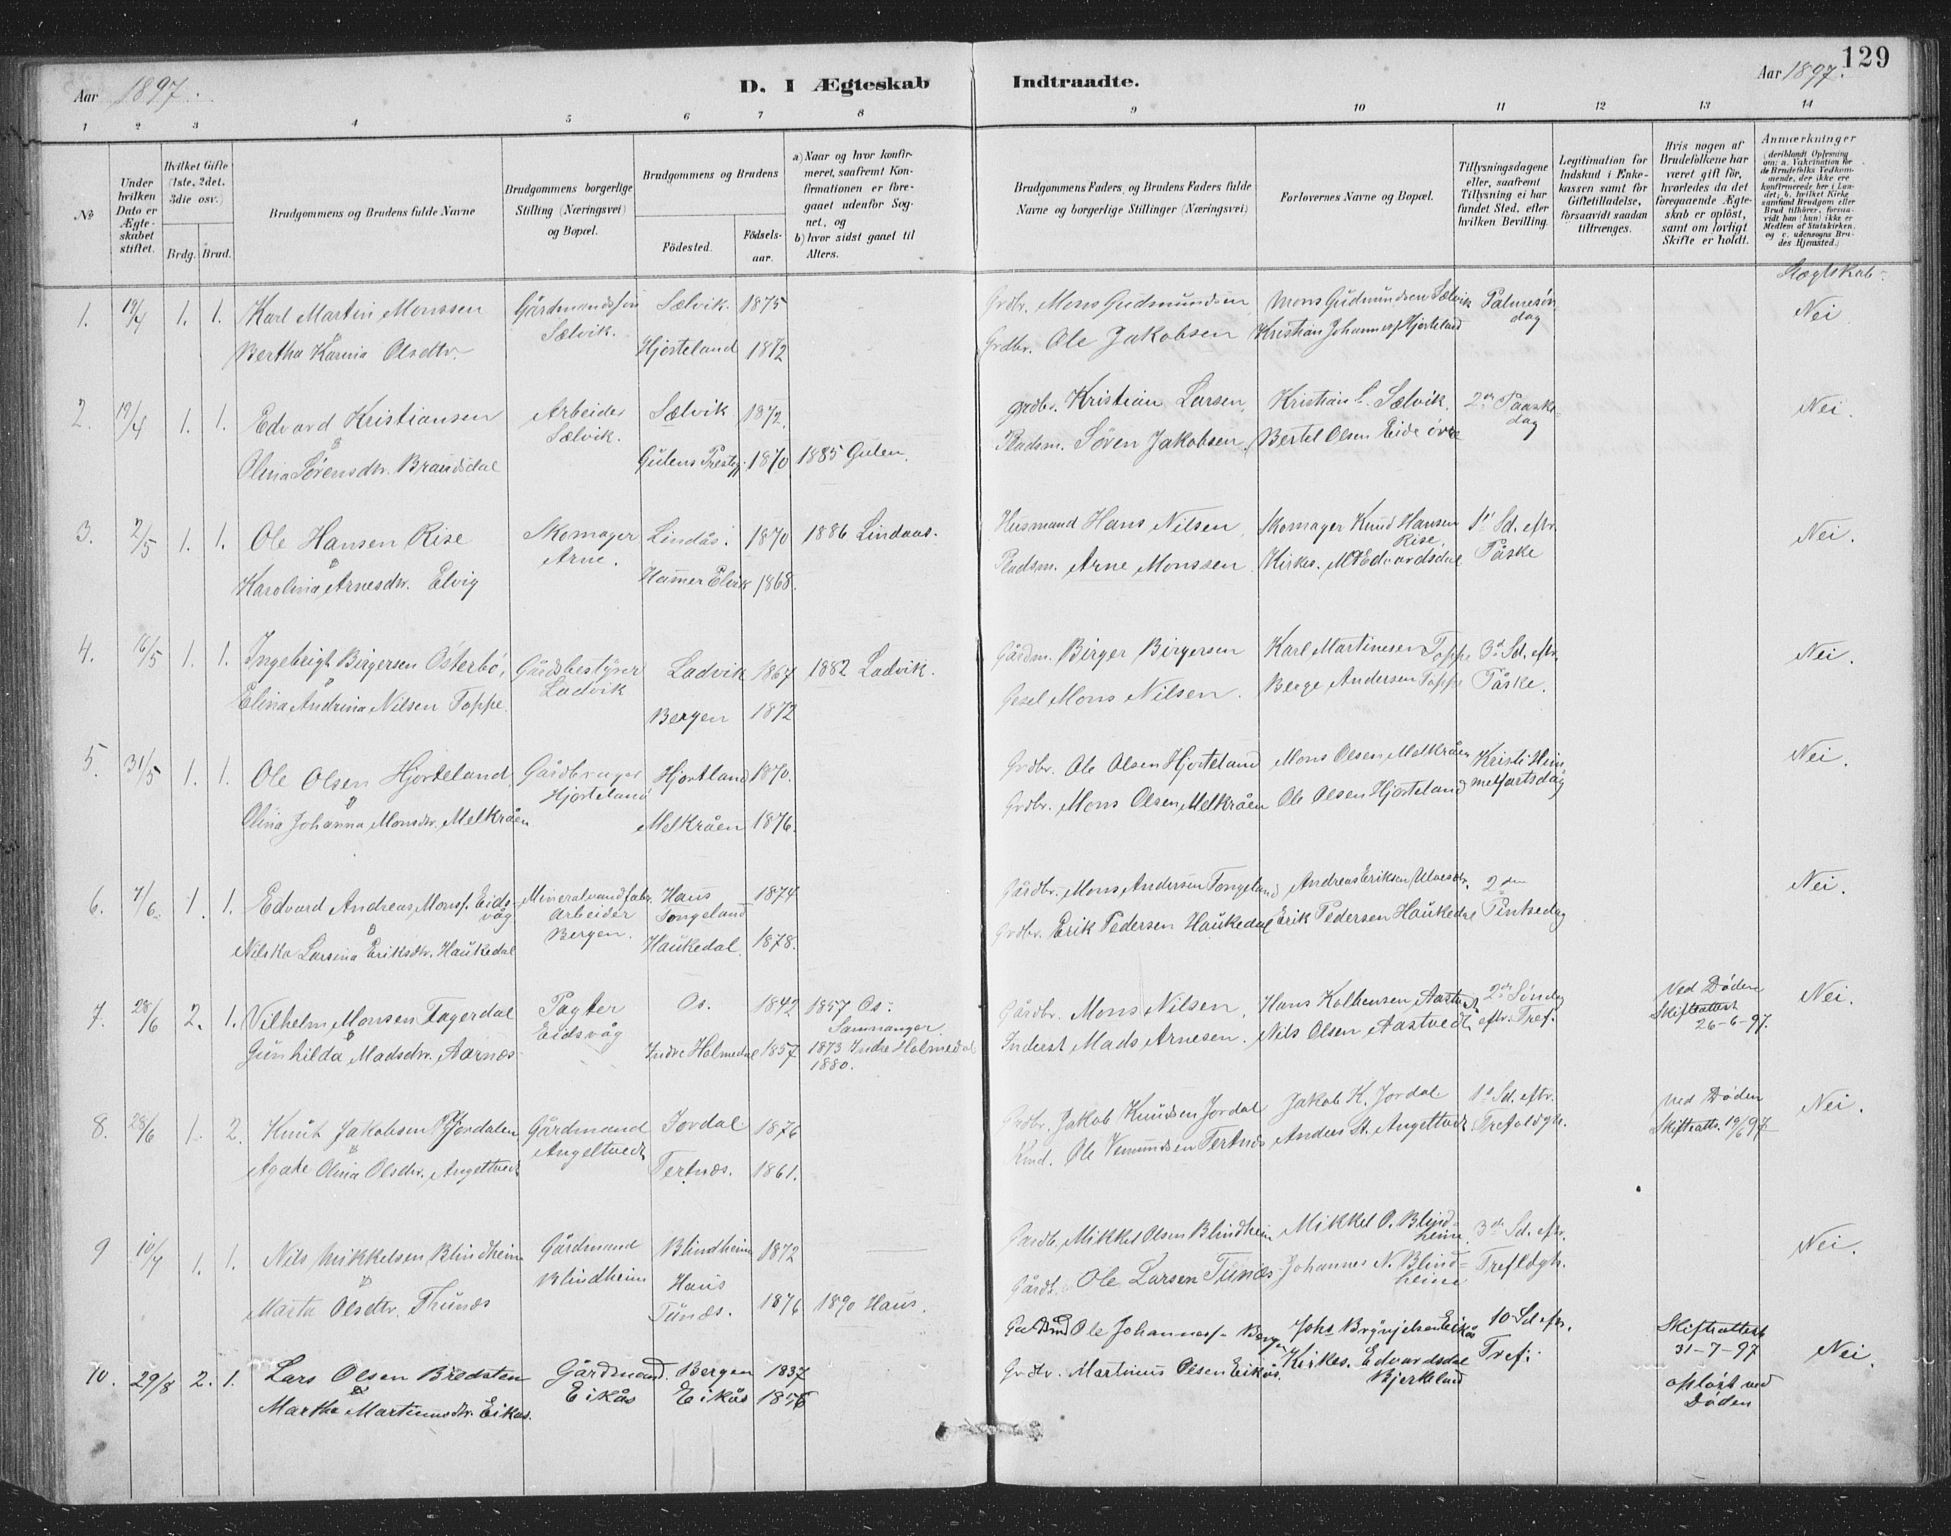 129
Aar 1897.
D. I Ægteskab Indtraadte.
Aar 1897.
1 2 3 4 5 6 7 8 9 10 11 12 13 14
No
Under hvilken Dato er Ægteskabet stiftet.
Hvilket Gifte (1ste, 2det, 3die osv.)
Brdg. Brud.
Brudgommens og Brudens fulde Navne
Brudgommens borgerlige Stilling (Næringsvei) og Bopæl.
Brudgommens og Brudens
Födested.
Födselsaar.
a) Naar og hvor konfirmeret, saafremt Konfirmationen er foregaaet udenfor Sognet, og
b) hvor sidst gaaet til Alters.
Brudgommens Faders, og Brudens Faders fulde Navne og borgerlige Stillinger (Næringsvei)
Forlovernes Navne og Bopæl.
Tillysningsdagene eller, saafremt Tillysning ei har fundet Sted, efter hvilken Bevilling.
Legitimation for Indskud i Enkekassen samt for Giftetilladelse, forsaavidt saadan tiltrænges.
Hvis nogen af Brudefolkene har været gift før, hvorledes da det foregaaende Ægteskab er oplöst, samt om lovligt Skifte er holdt.
Anmærkninger
(deriblandt Oplysning om: a. Vakcination for de Brudefolks Vedkommende, der ikke ere konfirmerede her i Landet; b. hvilket Kirkesamfund Brudgom eller Brud tilhører, forsaavidt han (hun) ikke er Medlem af Statskirken, og c. udensogns Brudes Hjemsted.)
Slægtskab
1. 19/4 1. 1. Karl Martin Monssen Gårdmandssøn Sælvik. Sælvik. 1875 Grdbr. Mons Gudmundsen Mons Gudmundsen Sælvik Palmesøndag Nei
Bertha Karina Olsdtr. Hjorteland 1872 Grdbr. Ole Jakobsen Kristian Johannesf Hjorteland
2. 19/4 1. 1. Edvard Kristiansen Arbeider Sælvik. Sælvik 1872. Grdbr. Kristian Larsen, Kristian L. Sælvik, 2den Paaskedag Nei.
&
Olina Sørensdtr. Brandsdal Gulens Prestegj. 1870 1885 Gulen. Pladsm. Søren Jakobsen Bertel Olsen Eide øvre
3. 2/5 1. 1. Ole Hansen Rise Skomager Arne. Lindås. 1870 1886 Lindaas. Husmand Hans Nilsen, Skomager Knud Hansen Rise, 1st Sd. eftr. Påske Nei.
&
Karolina Arnesdtr. Elvig Hamer Elvik 1868. Pladsm. Arne Monssen Kirkes. M Edvardsdal
4. 16/5 1. 1. Ingebrigt Birgersen Østerbø, Gårdsbestyrer Ladvik Ladvik 1867 1882 Ladvik. Gårdm. Birger Birgersen Karl Martinesen Toppe 3d Sd. eftr. Påske. Nei.
&
Elina Andrina Nilsen Toppe. Bergen 1872 Mons Nilsen. Berge Andersen Toppe
5. 31/5 1. 1. Ole Olsen Hjorteland, Gårdbruger Hjorteland Hjortland 1870. Grdbr. Ole Olsen Hjorteland Mons Olsen Melkråen Kristi Himmelfartsdag Nei.
&
Olina Johanna Monsdtr. Melkråen Melkråen 1876. Grdbr. Mons Olsen Melkråen Ole Olsen Hjorteland
6. 7/6. 1. 1. Edvard Andreas Monsf. Eidsvåg Mineralvandfabr. Arbeider Bergen. Haus Tongeland 1874 Gårdbr. Mons Andersen Tongeland Andreas Eriksen 2den Pintsedag Nei.
&
Nilska Larsina Eriksdtr. Haukedal Haukedal. 1878. Grdbr. Erik Pedersen Haukedal Erik Pedersen Haukedal
7. 28/6 2. 1. Vilhelm Monsen Fagerdal Pagter Eidsvåg Os. 1842 1857 Os. Samnanger Gårdbr. Mons Nilsen, Hans Aastvedt 2den Søndag eftr. Tref. Ved Døden Skifteattest 26-6-97. Nei.
&
Gunhilda Madsdtr. Aarnes Indre Holmedal 1857. 1873 Indre Holmedal 1880. Inderst Mads Arnesen. Nils Olsen Aastvedt
8. 28/6 1. 2. Knut Jakobsen Jordalen Gårdmand Angeltvedt Jordal 1876 Grdbr. Jakob Knudsen Jordal Jakob K. Jordal 1st Sd. eftr. Trefoldgh. Ved Døden Skifteatts. 19/6 97 Nei.
&
Agate Olina Olsdtr. Angeltvedt Tertnæs. 1861. Ole Vemundsen Tertnæs Anders St. Angeltvedt
9 10/7 1. 1. Nils Mikkelsen Blindheim Gårdmand Blindheim Blindheim 1872 Gardb. Mikkel Olsen Blindheim Mikkel O. Blindheim, 3de Sd. eftr. Trefldgh. Nei.
&
Marta Olsdtr. Thunæs Haus Tunæs. 1876 1890 Haus. Gårdb. Ole Larsen Tunæs Johannes N. Blindheim
10. 29/8 2. 1. Lars Olsen Bredsten Gårdmand. Eikås Bergen 1837 Ole Johannesf. Johs Brynjelsen Eikås 10 Sd eftr. Tref: Skifteattest 31-7-97 opløst ved Døden Nei.
&
Martha Martinusdtr. Eikås. Eikås 1856 Grdbr. Martinus Olsen Eikås. Kirkes. Edvardsdal Bjerkeland